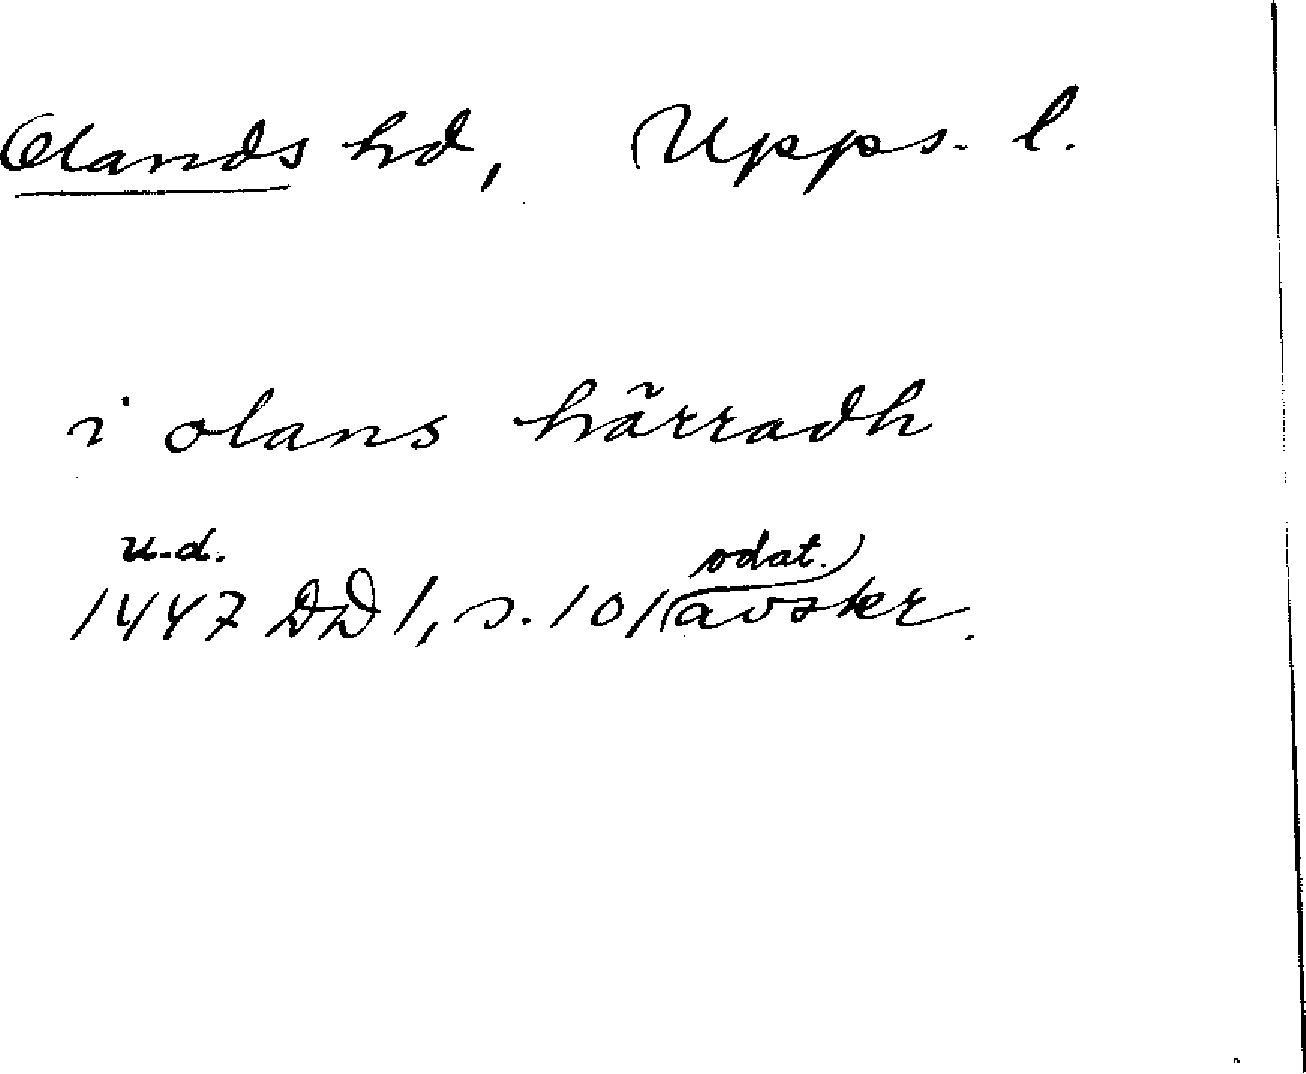 Olands hd, Upps. l.
i olans härradh
u.d.
1447 DD 1, s. 101 (odat. avskr.